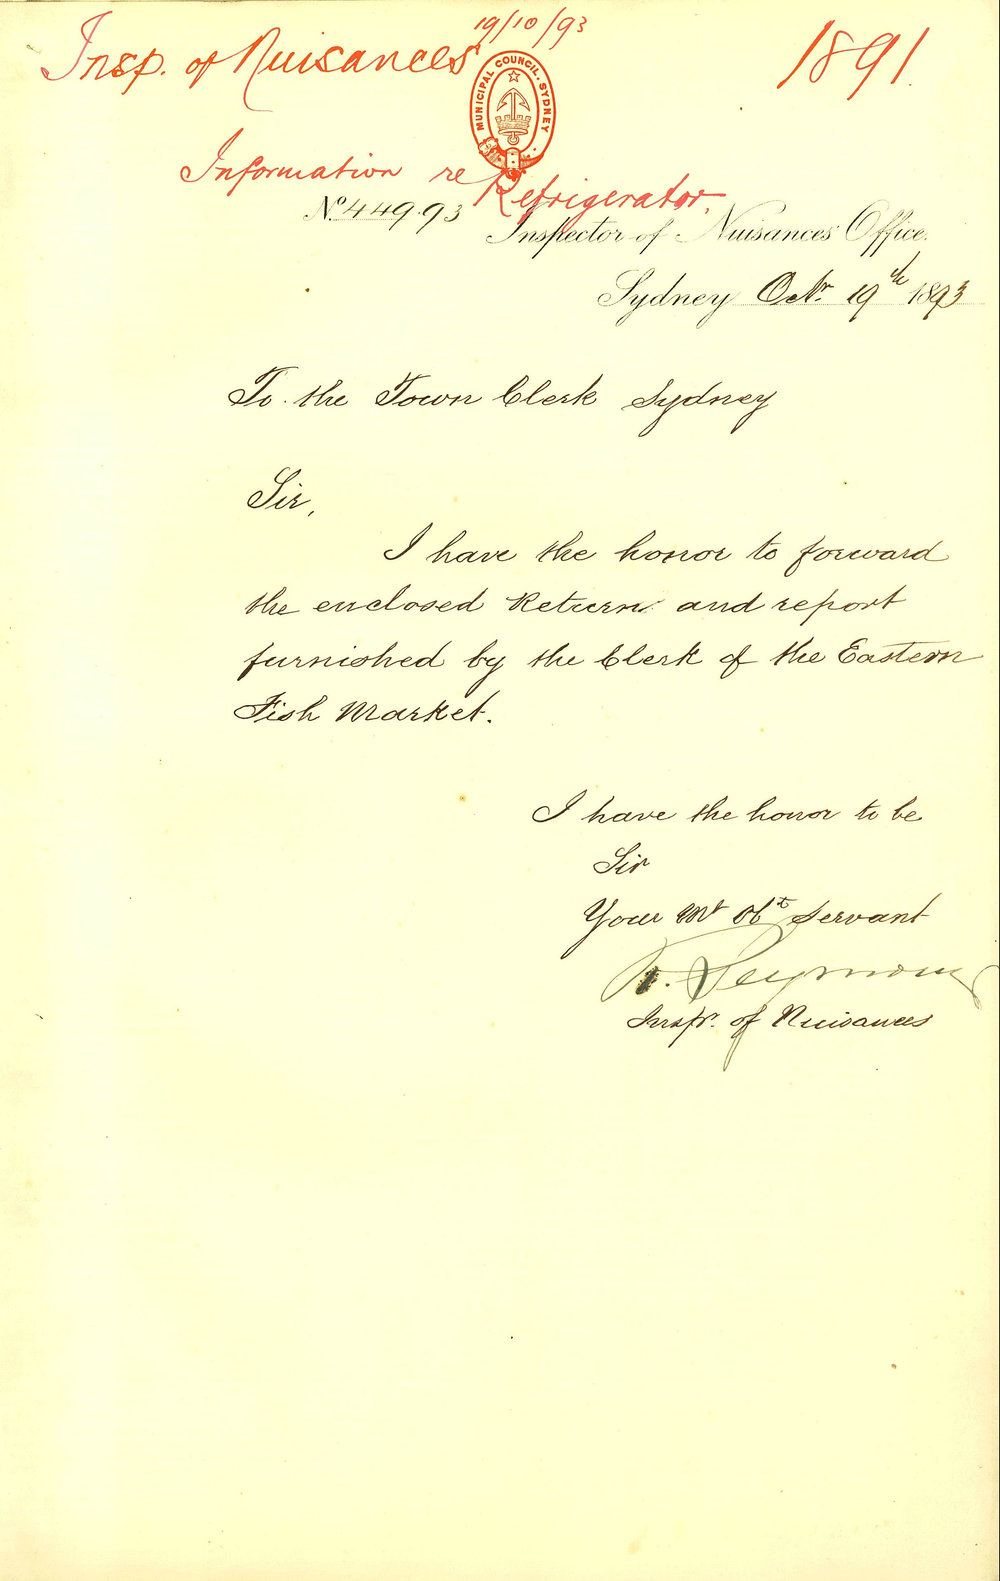 19/10/93
Insp. of Nuisances
1891.
MUNICIPAL COUNCIL. SYDNEY
Information re Refrigerator.
No. 449.93
Inspector of Nuisances' Office.
Sydney Octr. 19th 1893
To the Town Clerk Sydney
Sir,
I have the honor to forward
the enclosed Return and report
furnished by the Clerk of the Eastern
Fish Market.
I have the honor to be
Sir
Your Mt Obt Servant
R. Seymour
Inspr. of Nuisances